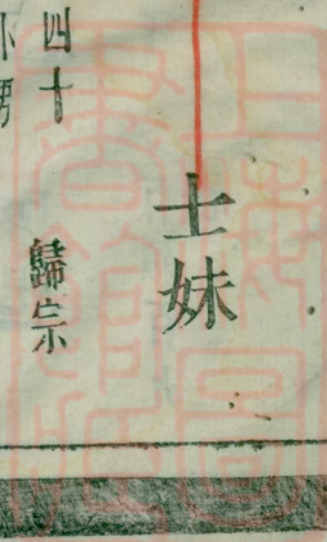 士妹
四十
歸宗